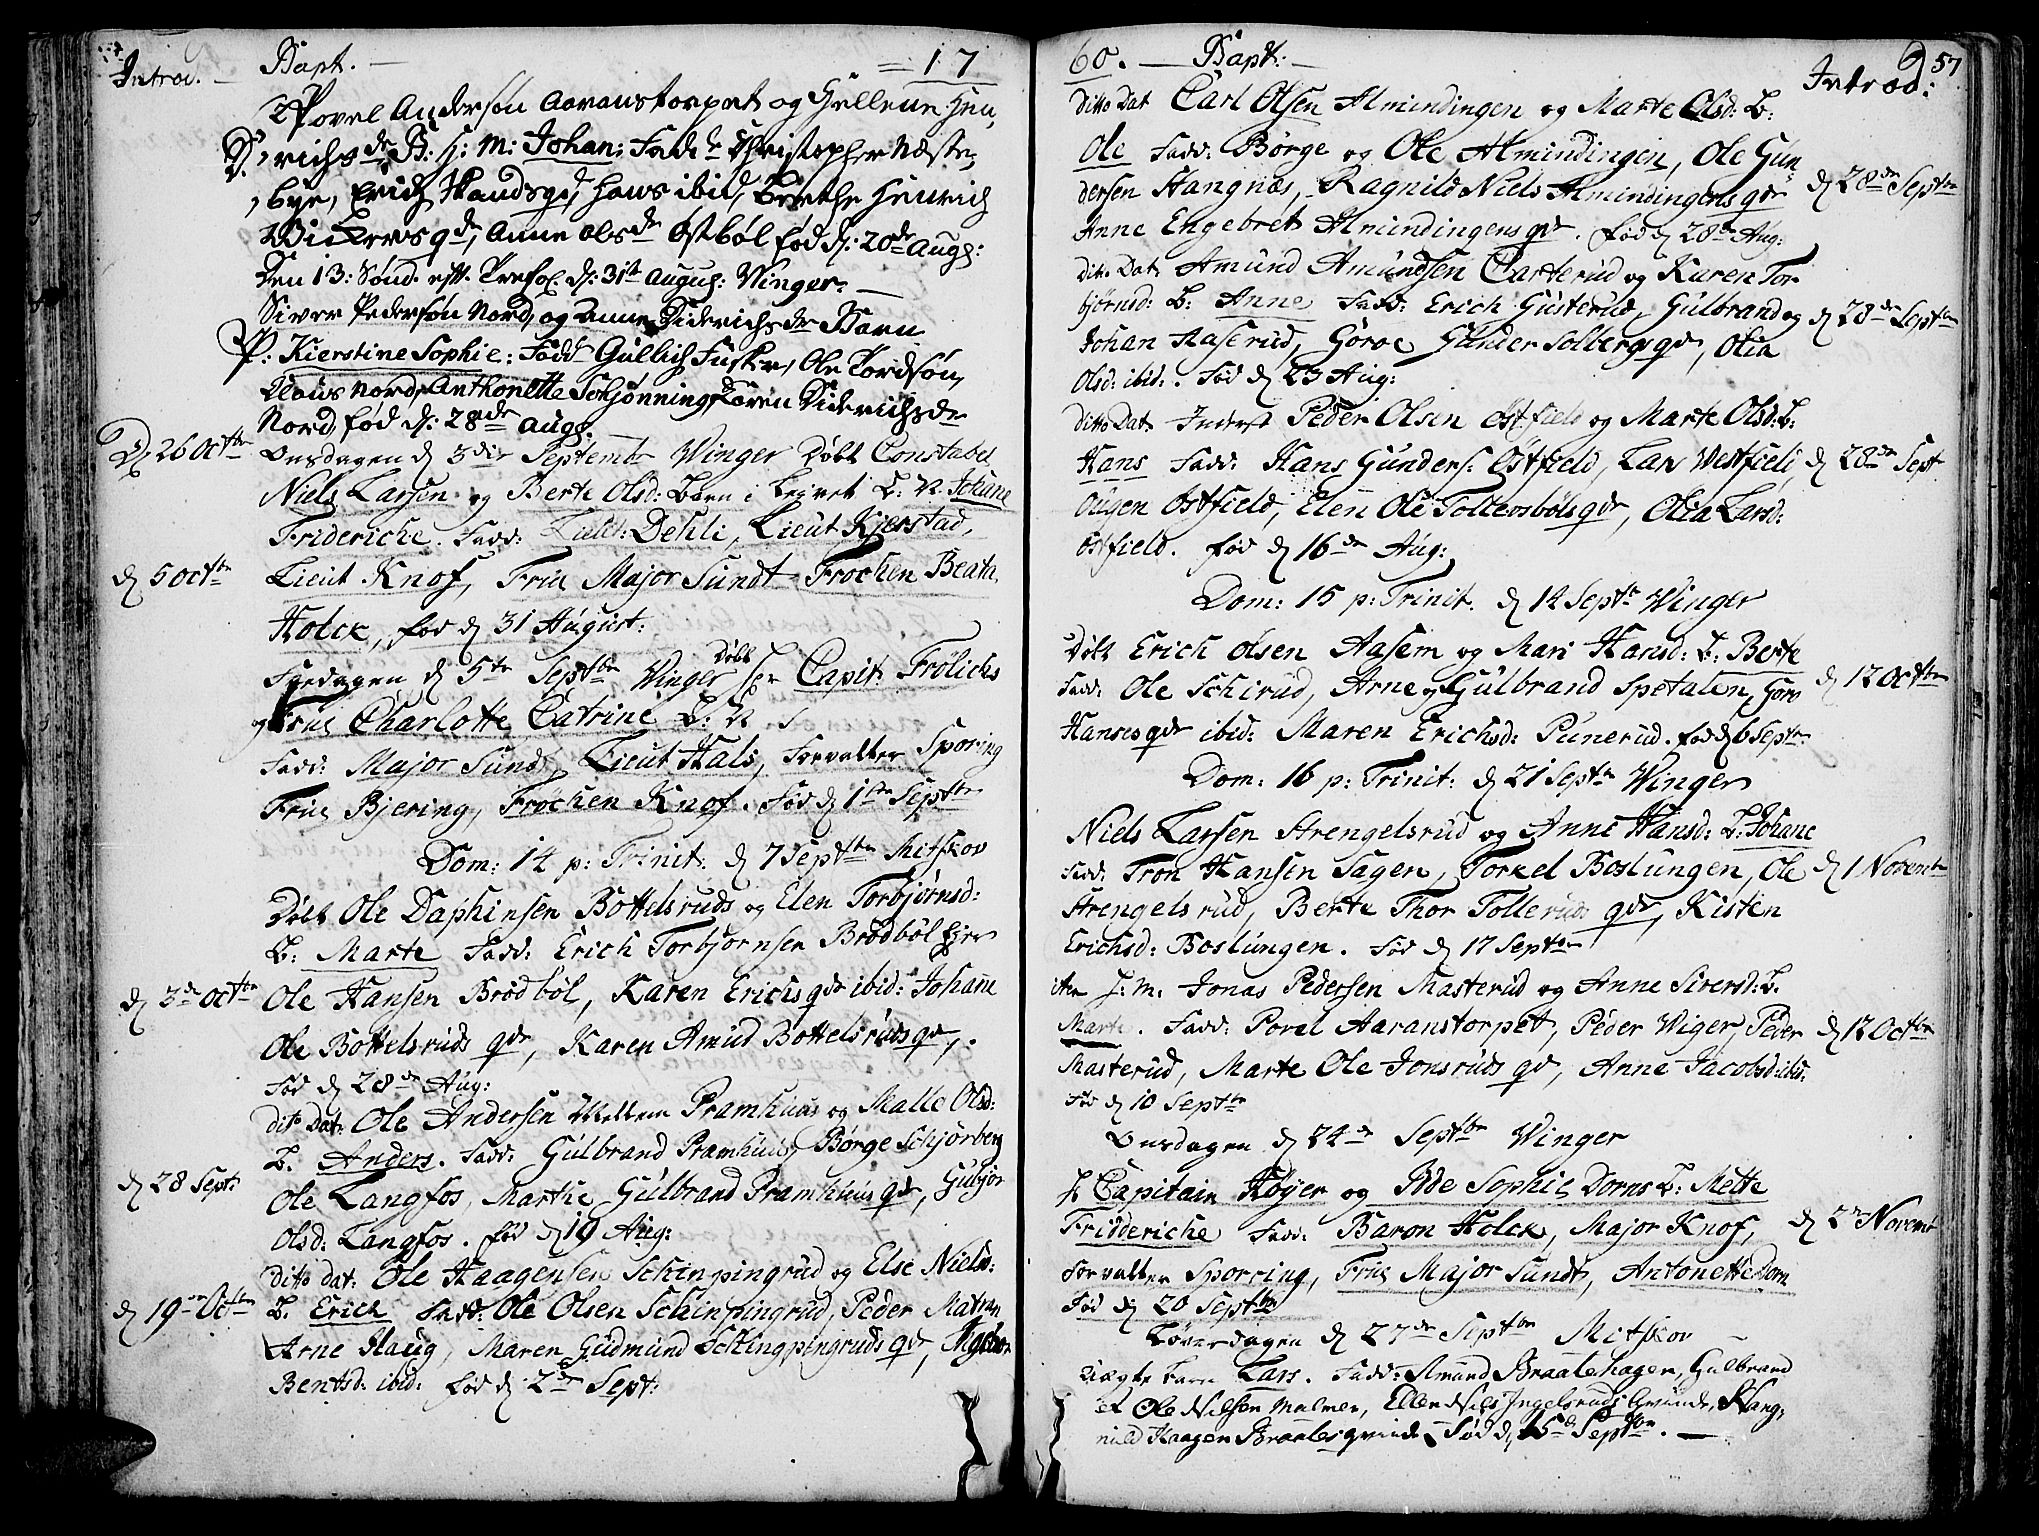 Introd. — Bapt. — = 17
Povel Andersøn Aaranstorpet og Hellene Hen,
richsdr B: H: M: Johan: Fad: Christopher Næste,
bye, Erich Strandsgd, Hans ibid, Berthe Henrich
Wickersqd, Anne Olsdr Østbøl fød d: 20de Aug:
Den 13: Sønd: eft. Trefol. d: 31te August: Winger. —
Siver Pedersøn Nord, og Anne Diderichsdr Barn
P: Kierstine Sophie: Fadd Gullich Fusker, Ole Tordsøn,
Claus Nord, Anthonette Schjønning, Karen Diderichsdr
Nord, fød d: 28de Aug:
D 26 Octbr Onsdagen d 3die Septembr Winger Døbt Constabel
Niels Larsen og Berte Olsd: Barn i Leyret B: N. Johane
Frideriche. Fadd: Lieut: Dehli, Lieut Kjerstad,
d 5 Octbr Lieut Knof, Frue Major Sundt Frøchen Beata
Holck, fød d 31 August:
Fredagen d 5te Septbr Winger Døbt Hr Capit: Frølichs
og Frue Charlotte Catrine B: N
Fadd: Major Sundt, Lieut Hals, Forvalter Sporing
Frue Bjering, Frøchen Knof. Fød d 1ste Septbr
Dom: 14 p: Trinit: d 7 Septbr Mitskov
Døbt Ole Daphinsen Bottelsruds og Elen Torbjørnsd:
B: Marte Fadd: Erich Torbjornsen Brødbøl Ejer
d 3de Octbr Ole Hansen Brødbøl, Karen Erichs qde ibid: Johane
Ole Bottelsruds qde, Karen Amud Bottelsruds qde,.
Fød d 28de Aug:
dito Dat: Ole Andersen Mellem Pramhuus og Malle Olsd:
B. Anders. Fadd: Gulbrand Pramhuus, Børge Schjørberg
d 28 Sept: Ole Langfos, Marthe Gulbrand Pramhuus qde, Gubjør
Olsd: Langfos. fød d 19 Aug:
Ditto dat: Ole Haagensen Schinpingrud og Else Nielsd:
d 19de Octbr B. Erick Fadd: Ole Olsen Schinpingrud, Peder Matran
Arne Haug, Maren Gudmund Schingpingruds qde,
Bentsd: ibid: fød d 2de Sept:
60. — Bapt: — Introd: 57
Ditto Dat Carl Olsen Almindingen og Marte Olsd: B:
Ole Fadd: Børge og Ole Almindingen, Ole Gun-
dersen Stangnæs, Ragnild Niels Almindingens qde d 28de Septbr
Anne Engebret Almindingens qde. fød d 28de Aug:
Dito Dat. Amund Amundsen Carterud og Karen Tor-
bjørnsd: B: Anne Fadd: Erich Gusterud, Gulbrand og d 28de Septbr
Johan Aaserud, Goroe Gunder Solbergs qde, Olia
Olsd: ibid: . Fød d 23 Aug:
Ditto Dat. Inderst Peder Olsen Østfield og Marte Olsd: B:
Hans Fadd: Hans Gunders: Østfield, Lars Westfield d 28de Sept
Østfield, Elen Ole Tollersbøls qde, Olia Larsd:
Østfield. fød d 16de Aug:
Dom: 15 p: Trinit. d 14 Septbr Winger
Døbt Erich Olsen Aasem og Mari Hansd: B: Berte
Fadd: Ole Schirud, Arne og Gulbrand Spetalen, Goro d 12 Octbr
Hanses qde ibid: Maren Erichsd: Punerud. fød d 6 Septbr
Dom: 16 p: Trinit: d 21 Septbr Winger
Niels Larsen Strengelsrud og Anne Hansd: B. Johane
Fadd: Tron Hansen Sagen, Torkel Boslungen, Ole d 1 Novembr
Strengelsrud, Berte Thor Tolleruds qde, Kisten
Erichsd: Boslungen. Fød d 17 Septbr
J: M: Jonas Pedersen Masterud og Anne Siversd: B.
Marte. Fadd: Povel Aaranstorpet, Peder Wiger, Peder d 12 Octbr
Masterud, Marte Ole Jonsruds qde, Anne Jacobsd: ibid:
Fød d 10 Septbr
Onsdagen d 24de Septbr Winger
Hr Capitain Høyer og Ide Sophie Dorns B: Mette
Fridderiche Fadd: Baron Holck, Major Knof, d 2de Novemb
Forvalter Sporring, Frue Major Sundt, Antonette Dorn
Fød d 20 Septbr
Løverdagen d 27de Septbr Mitskov —
Uægte Barn Lars. Fadd: Amund Braatehagen, Gulbrand
et Ole Nilsen Malmer, Ellen Nils Ingelsruds Qvinde, Rang,
nild Haagen Braates qvinde — Fød d 15de Septbr. —